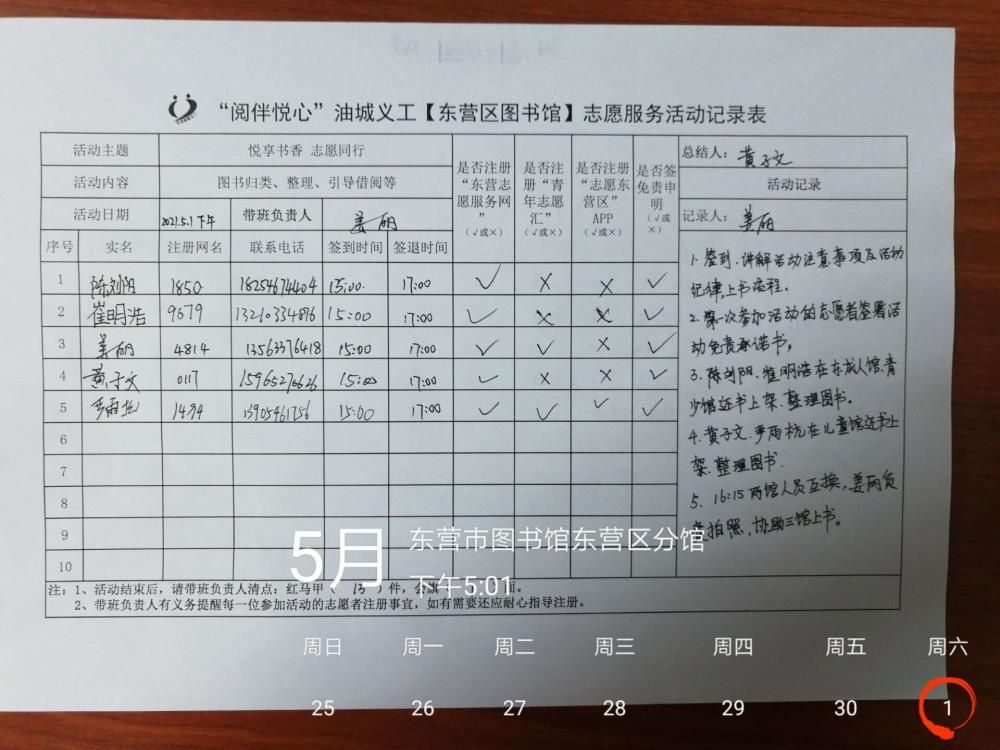 “阅伴悦心”油城义工【东营区图书馆】志愿服务活动记录表
活动主题 悦享书香 志愿同行
活动内容 图书归类、整理、引导借阅等
活动日期 2021.5.1下午 带班负责人 姜丽
序号 实名 注册网名 联系电话 签到时间 签退时间 是否注册“东营志愿服务网”（√或×） 是否注册“青年志愿汇”（√或×） 是否注册“志愿东营区”APP（√或×） 是否签免责申明（√或×）
1 陈刘阳 1850 18254674404 15:00 17:00 √ × × √
2 崔明浩 9679 13210334876 15:00 17:00 √ × × √
3 姜丽 4814 13563376418 15:00 17:00 √ √ × √
4 黄子文 0117 15965276626 15:00 17:00 √ × × √
5 1494 13905461756 15:00 17:00 √ √ √ √
6
7
8
9
10
总结人：黄子文
活动记录
记录人：姜丽
1.签到.讲解活动注意事项及活动
纪律,上书流程.
2.第一次参加活动的志愿者签署活
动免责承诺书,
3.陈刘阳.崔明浩在东成人馆.青
少馆还书上架.整理图书。
4.黄子文.李雨杭在儿童馆还书上
架.整理图书.
5.16:15两馆人员互换,姜丽负
责拍照,协助三馆上书。
注：1、活动结束后，请带班负责人清点：红马甲（ 13 ）件，会旗 面。
2、带班负责人有义务提醒每一位参加活动的志愿者注册事宜，如有需要还应耐心指导注册。
5月
东营市图书馆东营区分馆
下午5:01
周日 周一 周二 周三 周四 周五 周六
25 26 27 28 29 30 1